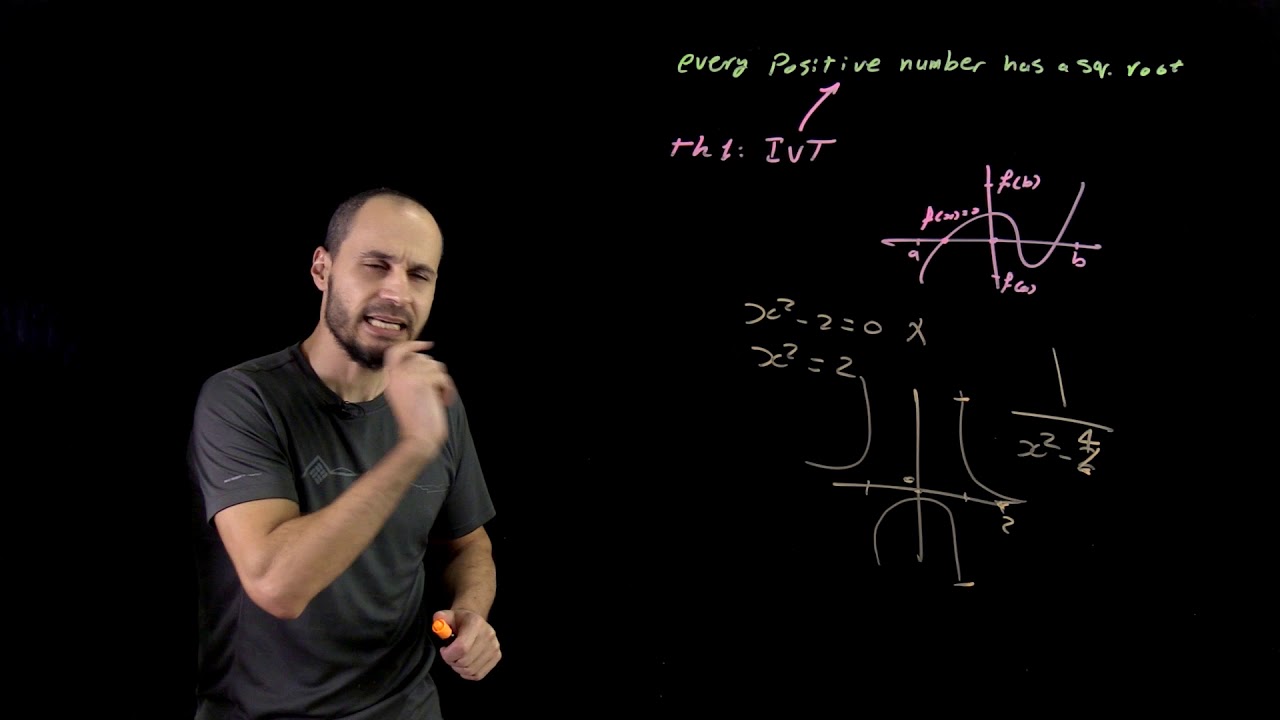 every positive number has a sq. root
th 1: IVT
f(b)
f(x)=0
a
b
f(a)
x² - 2 = 0
x² = 2
1
x² -
0
2